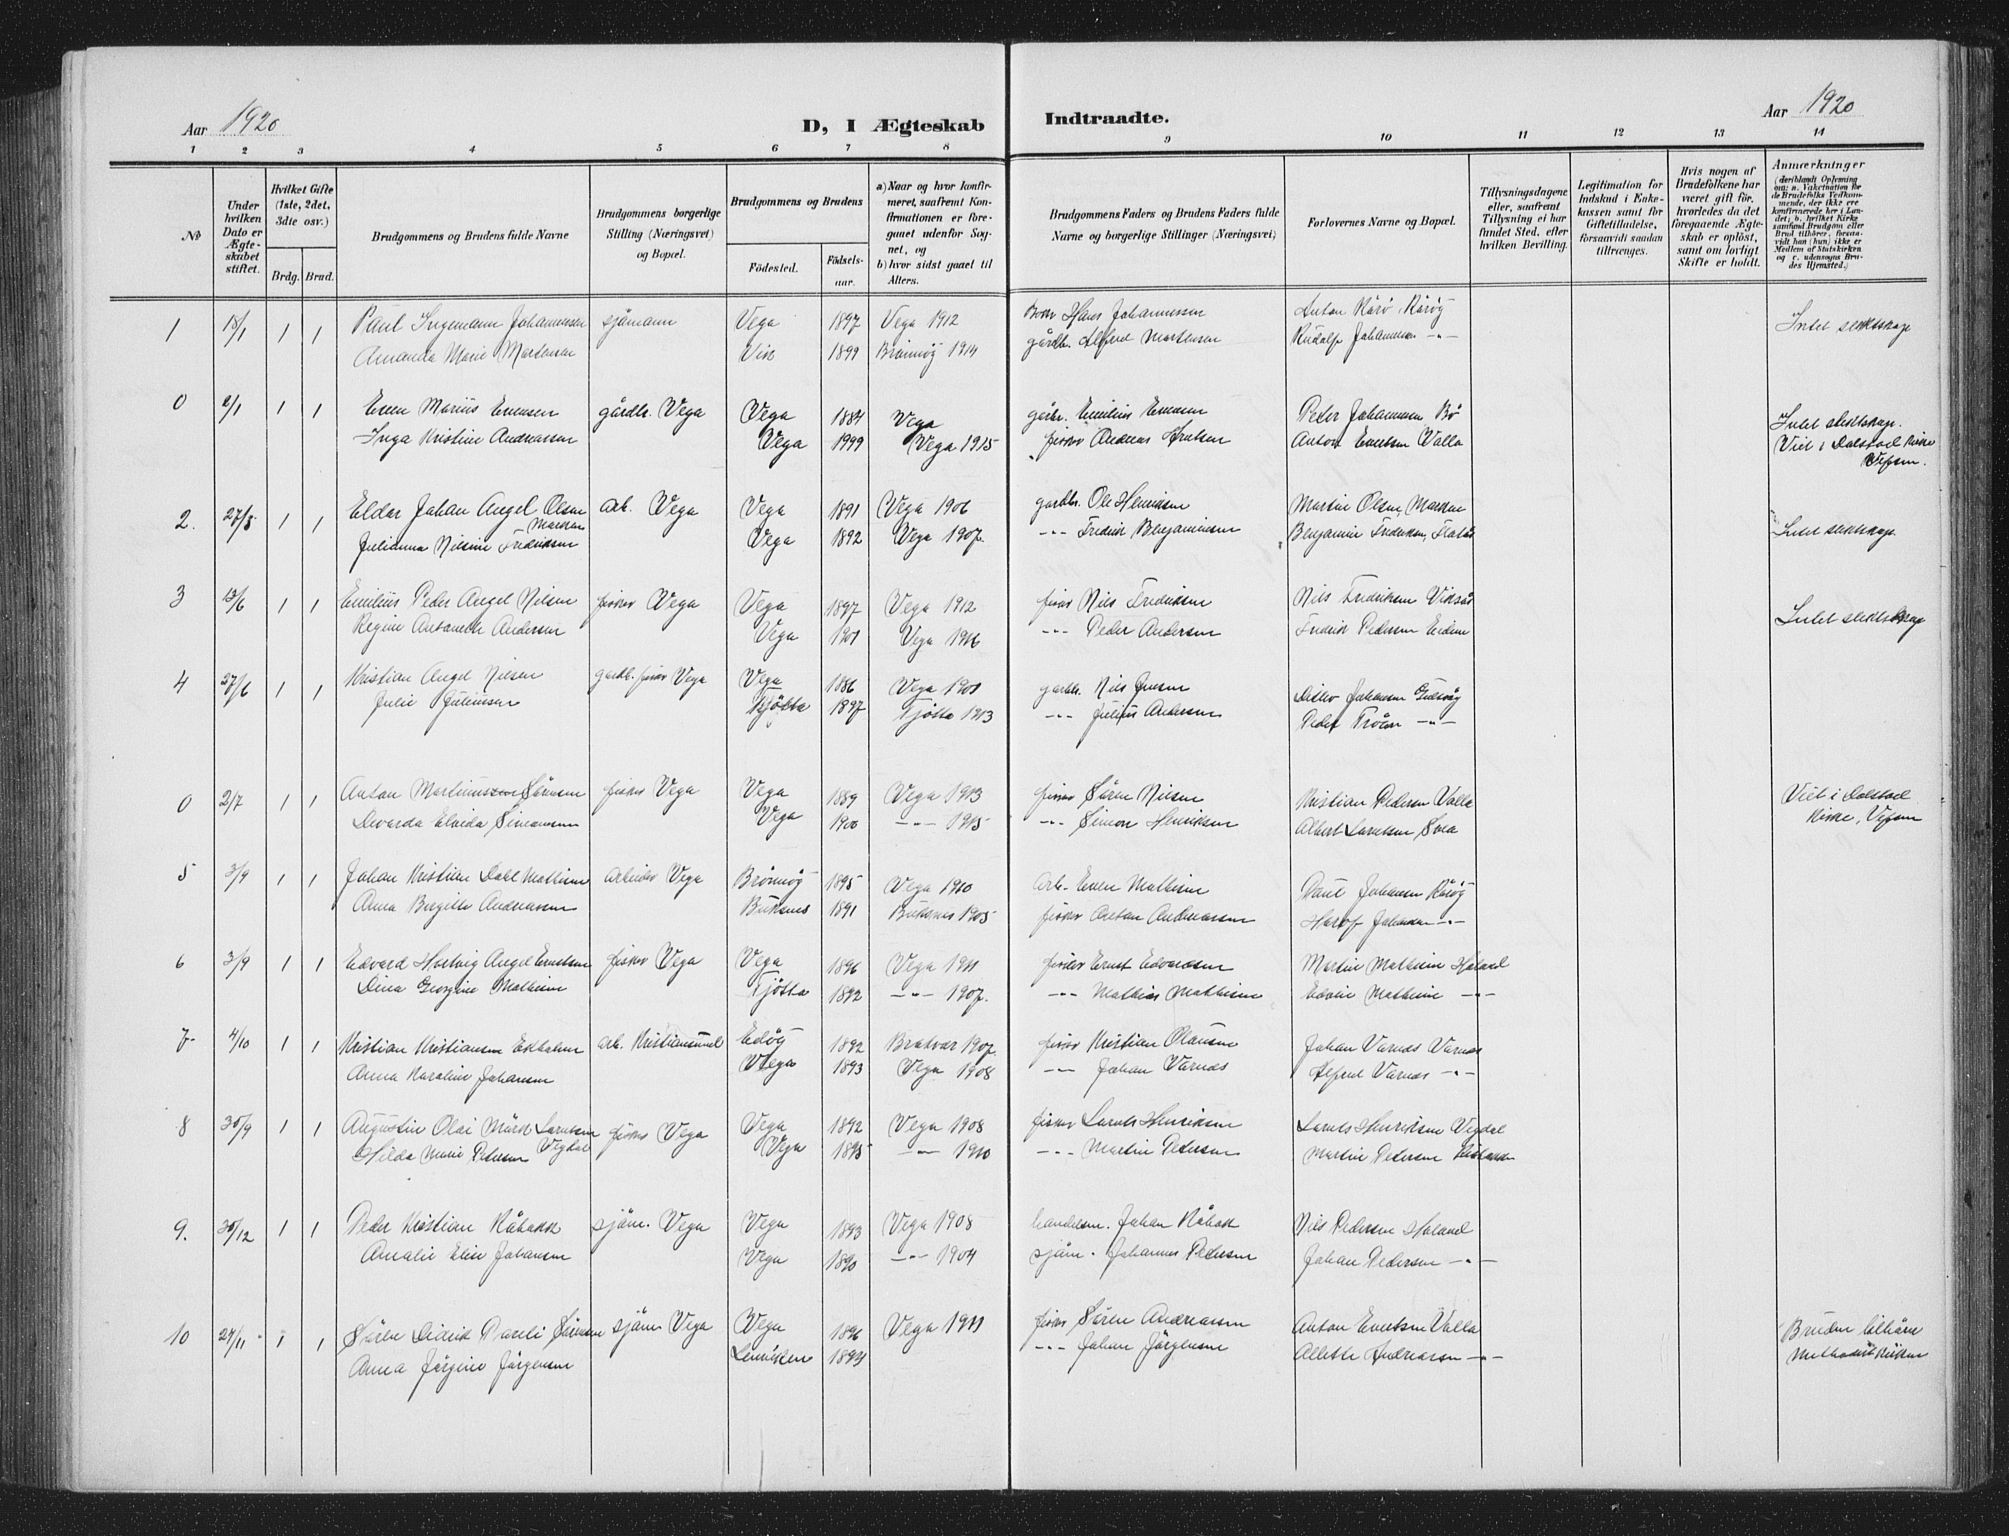 Aar 1920
D, I Ægteskab Indtraadte.
Aar 1920
1 2 3 4 5 6 7 8 9 10 11 12 13 14
№
Under hvilken Dato er Ægteskabet stiftet.
Hvilket Gifte (1ste, 2det, 3die osv.)
Brdg. Brud.
Brudgommens og Brudens fulde Navne
Brudgommens borgerlige Stilling (Næringsvei) og Bopæl.
Brudgommens og Brudens
Födested. Födsels-aar.
a) Naar og hvor konfirmeret, saafremt Konfirmationen er foregaaet udenfor Sognet, og
b) hvor sidst gaaet til Alters.
Brudgommens Faders og Brudens Faders fulde Navne og borgerlige Stillinger (Næringsvei)
Forlovernes Navne og Bopæl.
Tillysningsdagene eller, saafremt Tillysning ei har fundet Sted, efter hvilken Bevilling.
Legitimation for Indskud i Enkekassen samt for Giftetilladelse, forsaavidt saadan tiltrænges.
Hvis nogen af Brudefolkene har været gift för, hvorledes da det foregaaende Ægteskab er oplöst, samt om lovligt Skifte er holdt.
Anmærkninger
1 18/1 1 1 Paul Ingemann Johannessen sjömann Vega 1897 Vega 1912 Hans Johannessen Anton Rörö, Rörøy Intet slektskap
Amanda Marie Mortensen Vik 1899 Brönnöy 1914 gårdbr. Alfred Mortensen Rudolf Johannessen -"-
0 2/1 1 1 Even Marius Evensen gårdbr. Vega Vega 1884 Vega Emilius Evensen Peder Johannessen Bö Intet slektskap.
Inga Kristine Andreassen Vega 1999 Vega 1915 fisker Andreas Anton Evertsen Valla Viet i Dolstad kirke Vefsen.
2. 27/5 1 1 Eldar Johan Angel Olsen arb. Vega Vega 1891 Vega 1906 gardbr. Ole Henriksen Martin Olsen, Marken
Marken
Julianna Nilsine Fredriksen Vega 1892 Vega 1907. -"- Fredrik Benjaminsen Benjamin Fredriksen, Intet slektskap
3 13/6 1 1 Emilius Peder Angel Nilsen fisker Vega Vega 1897 Vega 1912 fisker Nils Fredriksen Nils Fredriksen
Regine Antonette Andersen Vega 1901 Vega 1916 -"- Peder Andersen Fredrik Pedersen Intet slektskap
4 27/6 1 1 Kristian Angel Nilsen gardb. fisker Vega Vega 1886 Vega 1901 gardbr. Nils Jensen Ditlev Johansen
Julie Juliussen Tjötta 1897 Tjötta 1913 -"- Julius Andersen Peder -"-
0 2/7 1 1 Anton Martinussen Sörensen fisker Vega Vega 1889 Vega 1913 fisker Sören Nilsen Kristian Pedersen Valla Viet i Dolstad
Simonsen Vega 1900 -"- 1915 -"- Simon Henriksen Albert Larntsen kirke, Vefsen
5 3/9 1 1 Johan Kristian Dahl Mathisen arbeider Vega Brönnöy 1895 Vega 1910 arb. Even Mathisen Paul Johansen Rörøy
Anna Birgitte Andreassen Buksnes 1891 Buksnes 1905 fisker Anton Andreassen Johansen -"-
6 3/9 1 1 Edvard Hartvig Angel Erntsen fisker Vega Vega 1896 Vega 1911 fisker Ernst Edvardsen Martin Mathisen Holand
Dina Georgine Mathisen Tjötta 1892 -"- 1907. -"- Mathias Mathisen Edvin Mathisen -"-
7 4/10 1 1 Kristian Kristiansen Ekholm arb. Kristiansund Edöy 1892 Brattvær 1907. fisker Kristian Olausen Johan Varnes Varnes
Anna Karoline Johansen Vega 1893 Vega 1908 -"- Johan Varnes Alfred Varnes -"-
8 30/9 1 1 Augustin Olai Mörk Larntsen fisker Vega Vega 1892 Vega 1908 fisker Larnts Henriksen Larnts Henriksen Vegdal
Vegdal
Hilda Marie Pedersen Vega 1895 -"- 1910 -"- Martin Pedersen Martin Pedersen
9. 30/12 1 1 Peder Kristian Råbakk sjöm. Vega Vega 1893 Vega 1908 handelsm. Johan Råbak Nils Pedersen Holand
Amalie Elise Johansen Vega 1890 -"- 1904 sjöm. Johannes Pedersen Johan Pedersen -"-
10 27/11 1 1 Sören Didrik Pareli Sörensen sjöm Vega Vega 1896 Vega 1911 fisker Sören Andreassen Anton Evertsen Valla Bruden tilhörer
Anna Jörgine Jörgensen 1894 -"- Johan Jörgensen Andreassen -"- Methodistkirken